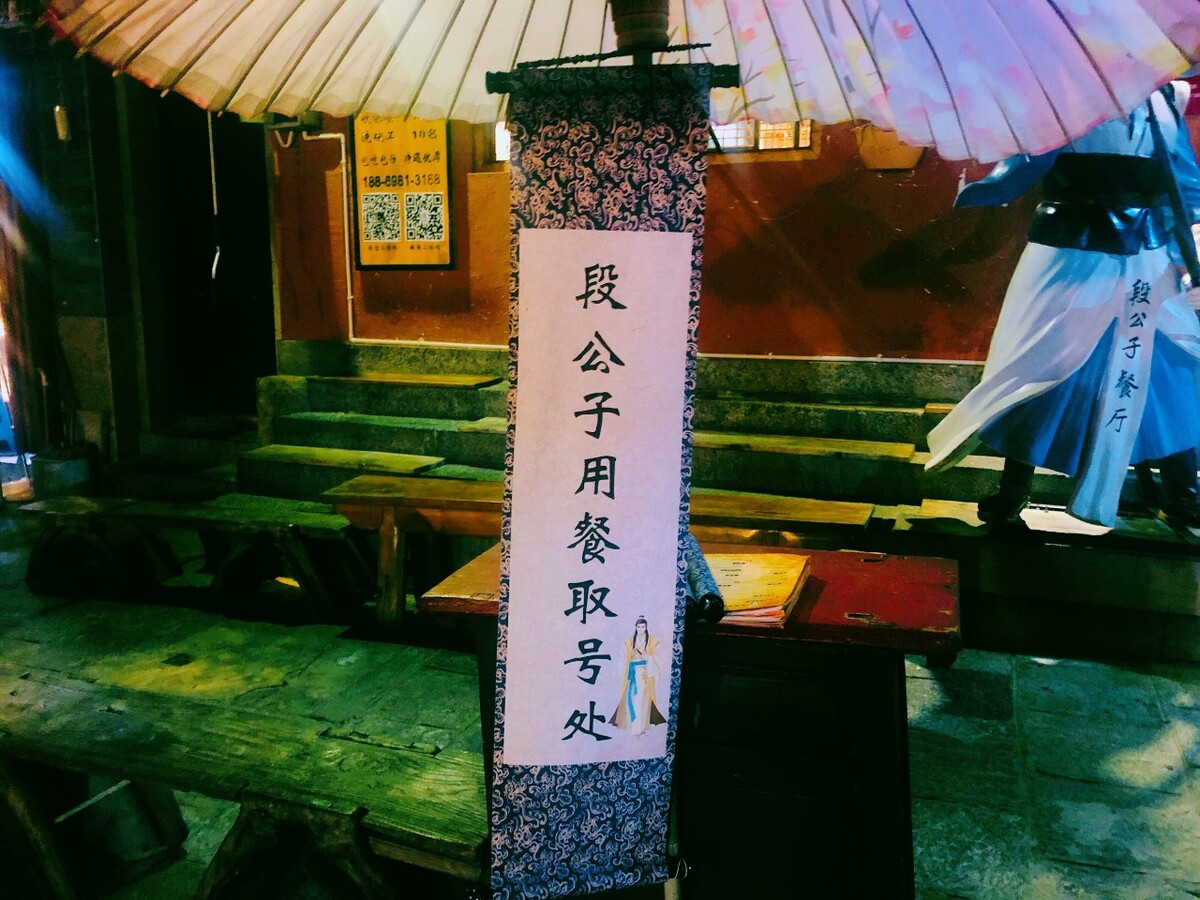 段公子用餐取号处
段公子餐厅
洗碗工 10名
188-8981-3168